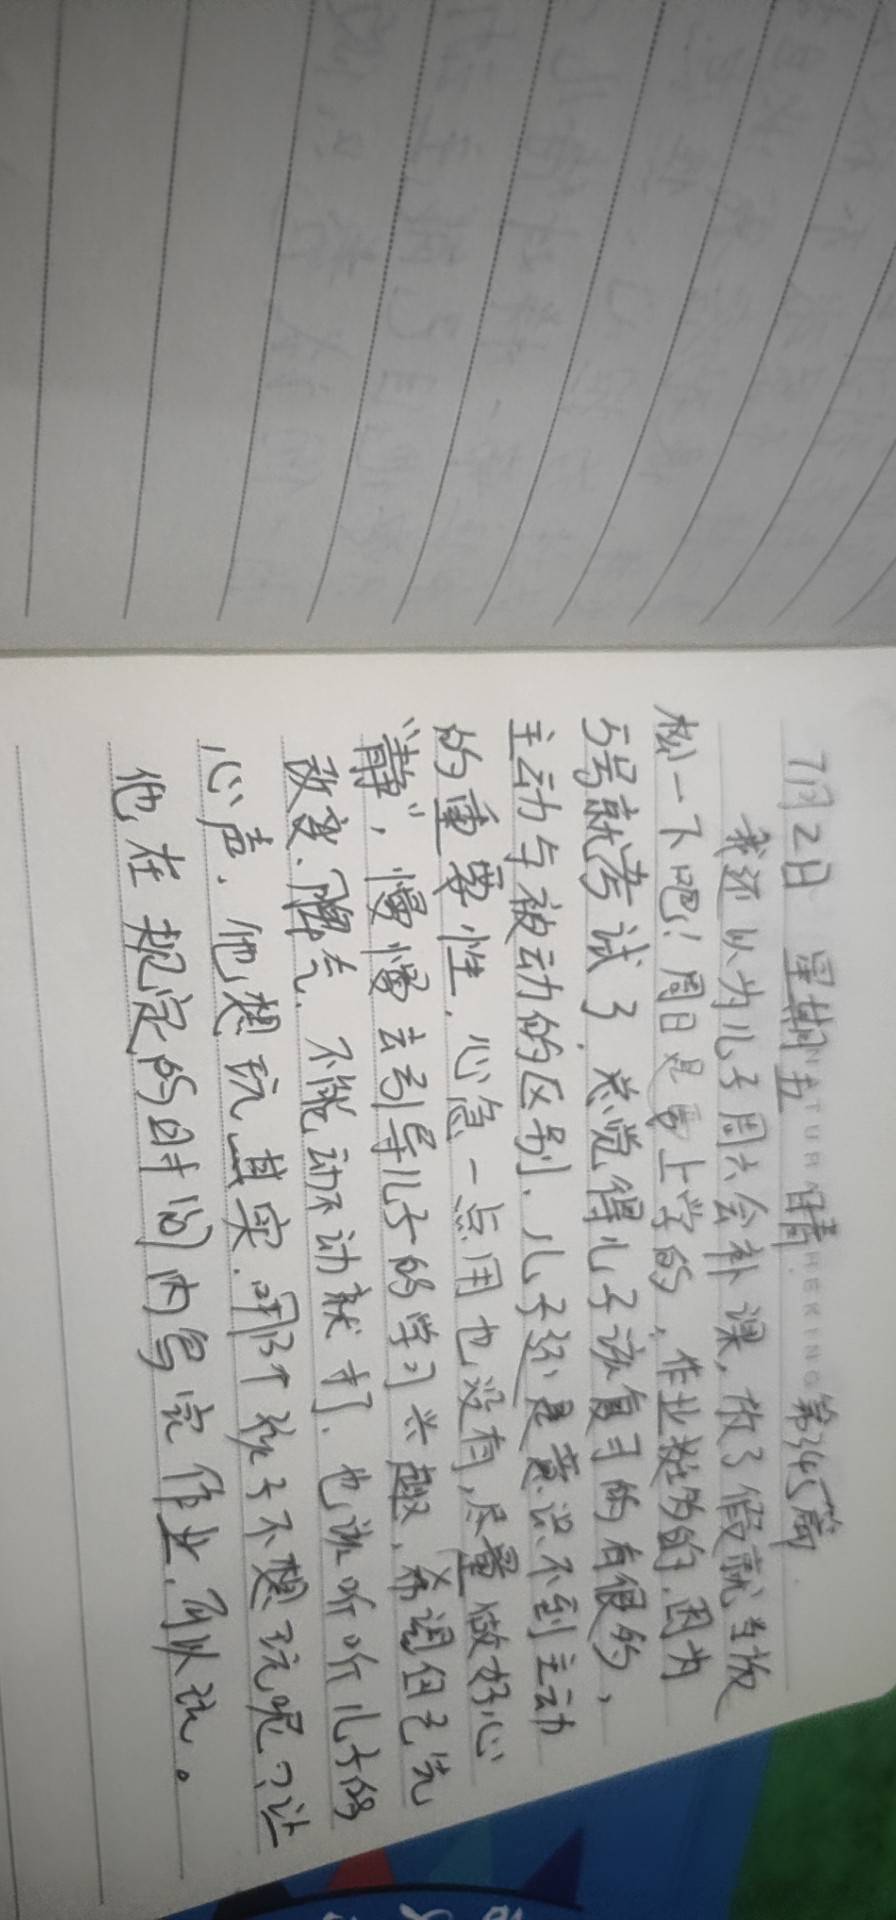 7月2日 星期五 晴 第345篇
NATURA HEKING
我还以为儿子周六会补课，放了假就当放
松一下吧！周日是要上学的，作业挺多的，因为
5号就考试了，总觉得儿子该复习的有很多，
主动与被动的区别，儿子还是意识不到主动
的重要性，心急一点用也没有，尽量做好心
“静”，慢慢去引导儿子的学习兴趣，希望自己先
改变、脾气，不能动不动就打，也该听听儿子的
心声，他想玩，其实，哪个孩子不想玩呢？让
他在规定的时间内写完作业，可以玩。